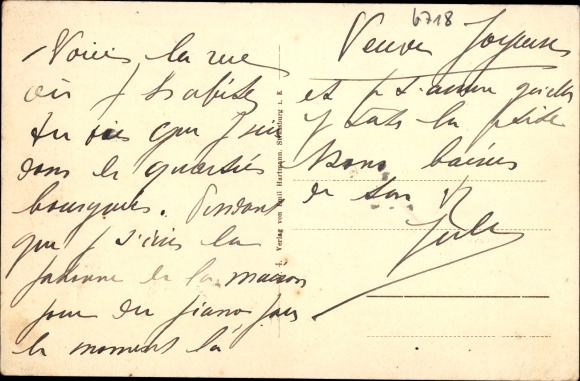 Voici la rue
où j'habite
tu vois que j'suis
dans le quartier
bourgeois. Pendant
que j t'écris la
patronne de la maison
joue du piano pour
le moment la
6718
Veuve Joyeuse
et j t'assure qu'elle
la
Bons baisers
de ton
Jules
Verlag von Emil Hartmann, Strassburg i. E.